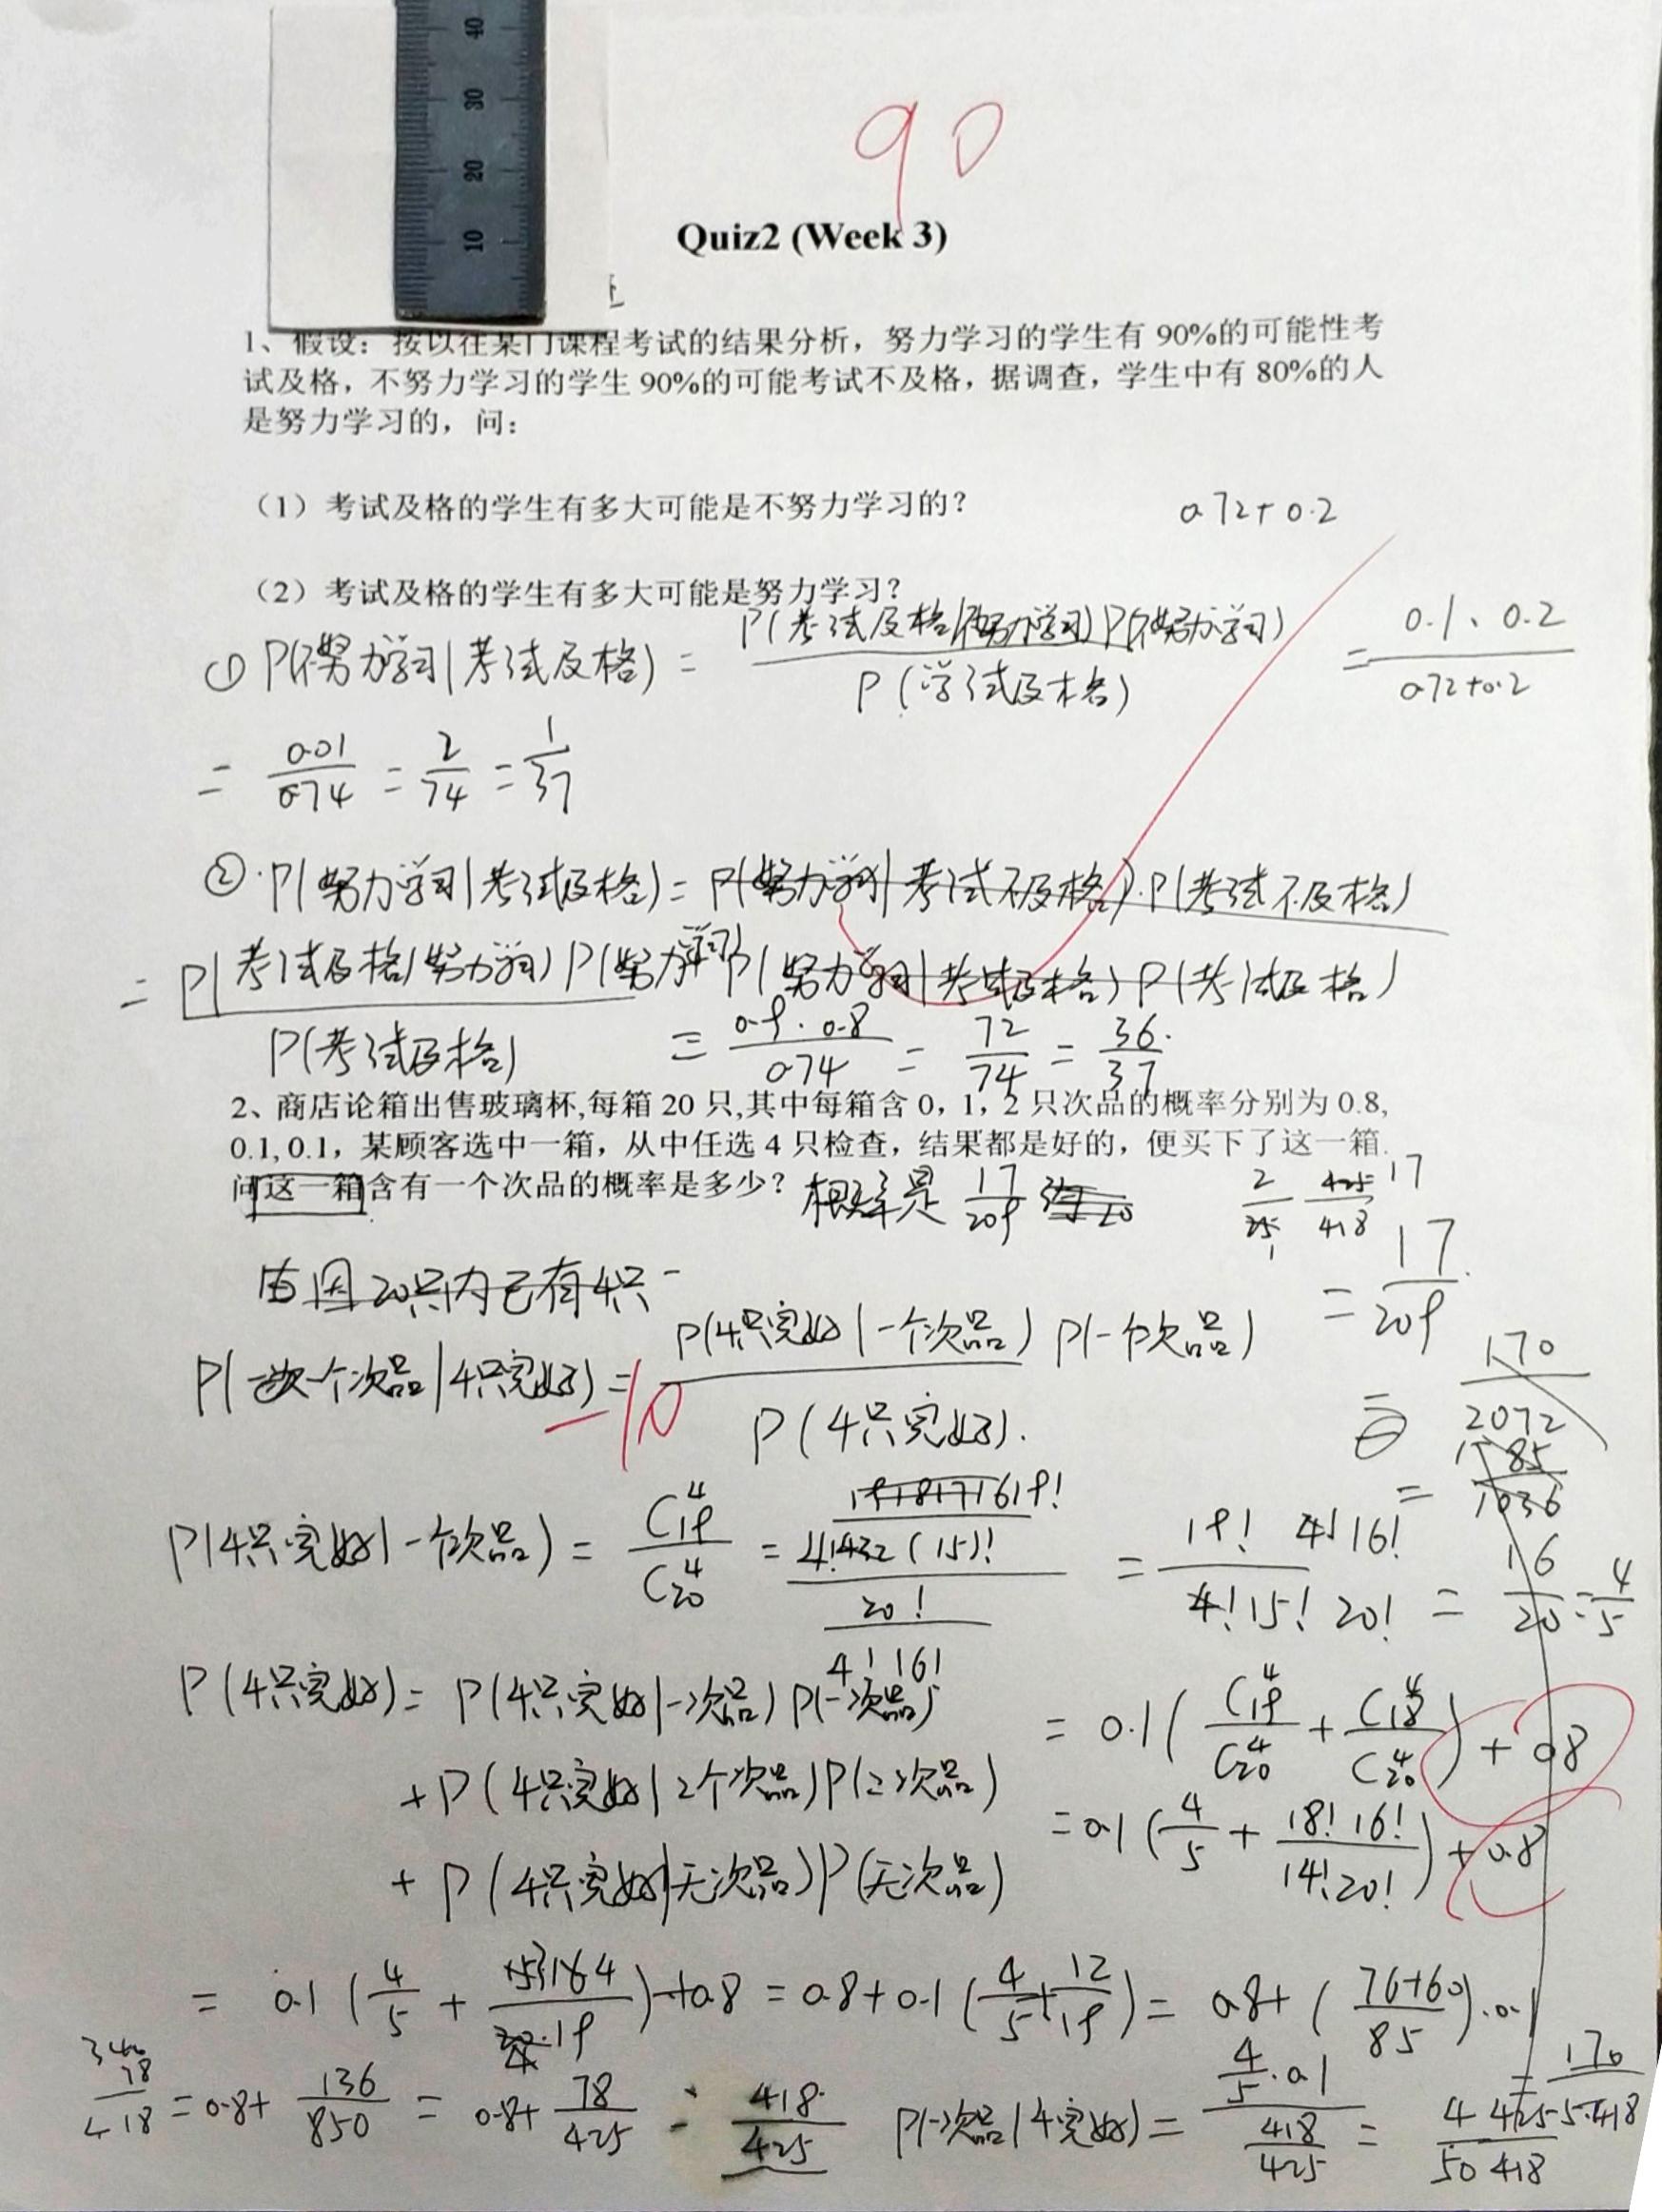 40
30
20
10
90
Quiz2 (Week 3)
1、假设：按以往某门课程考试的结果分析，努力学习的学生有 90%的可能性考
试及格，不努力学习的学生 90%的可能考试不及格，据调查，学生中有 80%的人
是努力学习的，问：
（1）考试及格的学生有多大可能是不努力学习的？
0.72+0.2
（2）考试及格的学生有多大可能是努力学习？
① P(不努力学习|考试及格) = P(考试及格|不努力学习)P(不努力学习) / P(学试及格) = 0.1、0.2 / 0.72+0.2
= 0.01/0.74 = 2/74 = 1/37
②.P(努力学习|考试及格) = P(努力学习|考试不及格).P(考试不及格)
= P(考试及格|努力学习)P(努力学习) P(努力学习|考试及格)P(考试及格)
P(考试及格) = 0.9.0.8/0.74 = 72/74 = 36/37
2、商店论箱出售玻璃杯,每箱 20 只,其中每箱含 0，1，2 只次品的概率分别为 0.8,
0.1, 0.1，某顾客选中一箱，从中任选 4 只检查，结果都是好的，便买下了这一箱.
问这一箱含有一个次品的概率是多少？
概率是 17/209
2/25 425/418 17
= 17/209
因20只内已有4只
P(一个次品|4只完好) = P(4只完好|一个次品) P(一个次品) / P(4只完好).
-10
= 170/2072
= 85/1036
P(4只完好|一个次品) = C19^4/C20^4 = 19!/4!(15)! / 20!/4!16! = 19! 4!16!/4!15!20! = 16/20 = 4/5
P(4只完好) = P(4只完好|一次品)P(一次品) = 0.1(C19^4/C20^4 + C18^4/C20^4) + 0.8
+P(4只完好|2个次品)P(2次品) = 0.1(4/5 + 18!16!/14!20!) + 0.8
+ P(4只完好|无次品)P(无次品)
= 0.1(4/5 + /19) + 0.8 = 0.8+0.1(4/5+12/19) = 0.8+(76+60/85).0.1
418 = 0.8+ 136/850 = 0.8+ 78/425 = 418/425 P(一次品|4完好) = 4/5.0.1 / 418/425 = 4 425/50 418 = 170/5.418